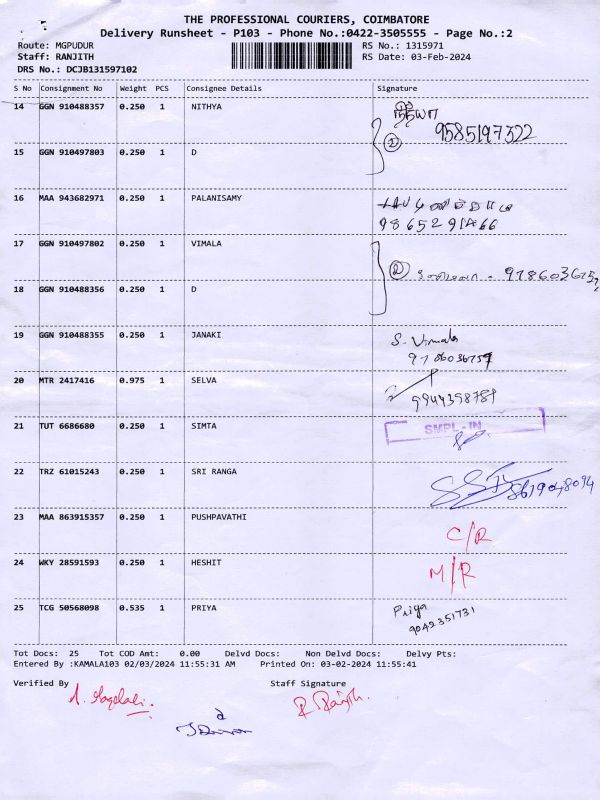 THE PROFESSIONAL COURIERS, COIMBATORE
Delivery Runsheet - P103 - Phone No.:0422-3505555 - Page No.:2
Route: MGPUDUR RS No.: 1315971
Staff: RANJITH RS Date: 03-Feb-2024
DRS No.: DCJB131597102
S No Consignment No Weight PCS Consignee Details Signature
14 GGN 910488357 0.250 1 NITHYA நித்யா
9585197322
15 GGN 910497803 0.250 1 D ②
16 MAA 943682971 0.250 1 PALANISAMY
9865291466
17 GGN 910497802 0.250 1 VIMALA
② 9786036757
18 GGN 910488356 0.250 1 D
19 GGN 910488355 0.250 1 JANAKI S. Vimala
9786036757
20 MTR 2417416 0.975 1 SELVA
9944398781
21 TUT 6686680 0.250 1 SIMTA SMPL - IN
22 TRZ 61015243 0.250 1 SRI RANGA
23 MAA 863915357 0.250 1 PUSHPAVATHI C/R
24 WKY 28591593 0.250 1 HESHIT M/R
25 TCG 50568098 0.535 1 PRIYA Priya
9042351731
Tot Docs: 25 Tot COD Amt: 0.00 Delvd Docs: Non Delvd Docs: Delvy Pts:
Entered By :KAMALA103 02/03/2024 11:55:31 AM Printed On: 03-02-2024 11:55:41
Verified By Staff Signature
R. Ranjith.